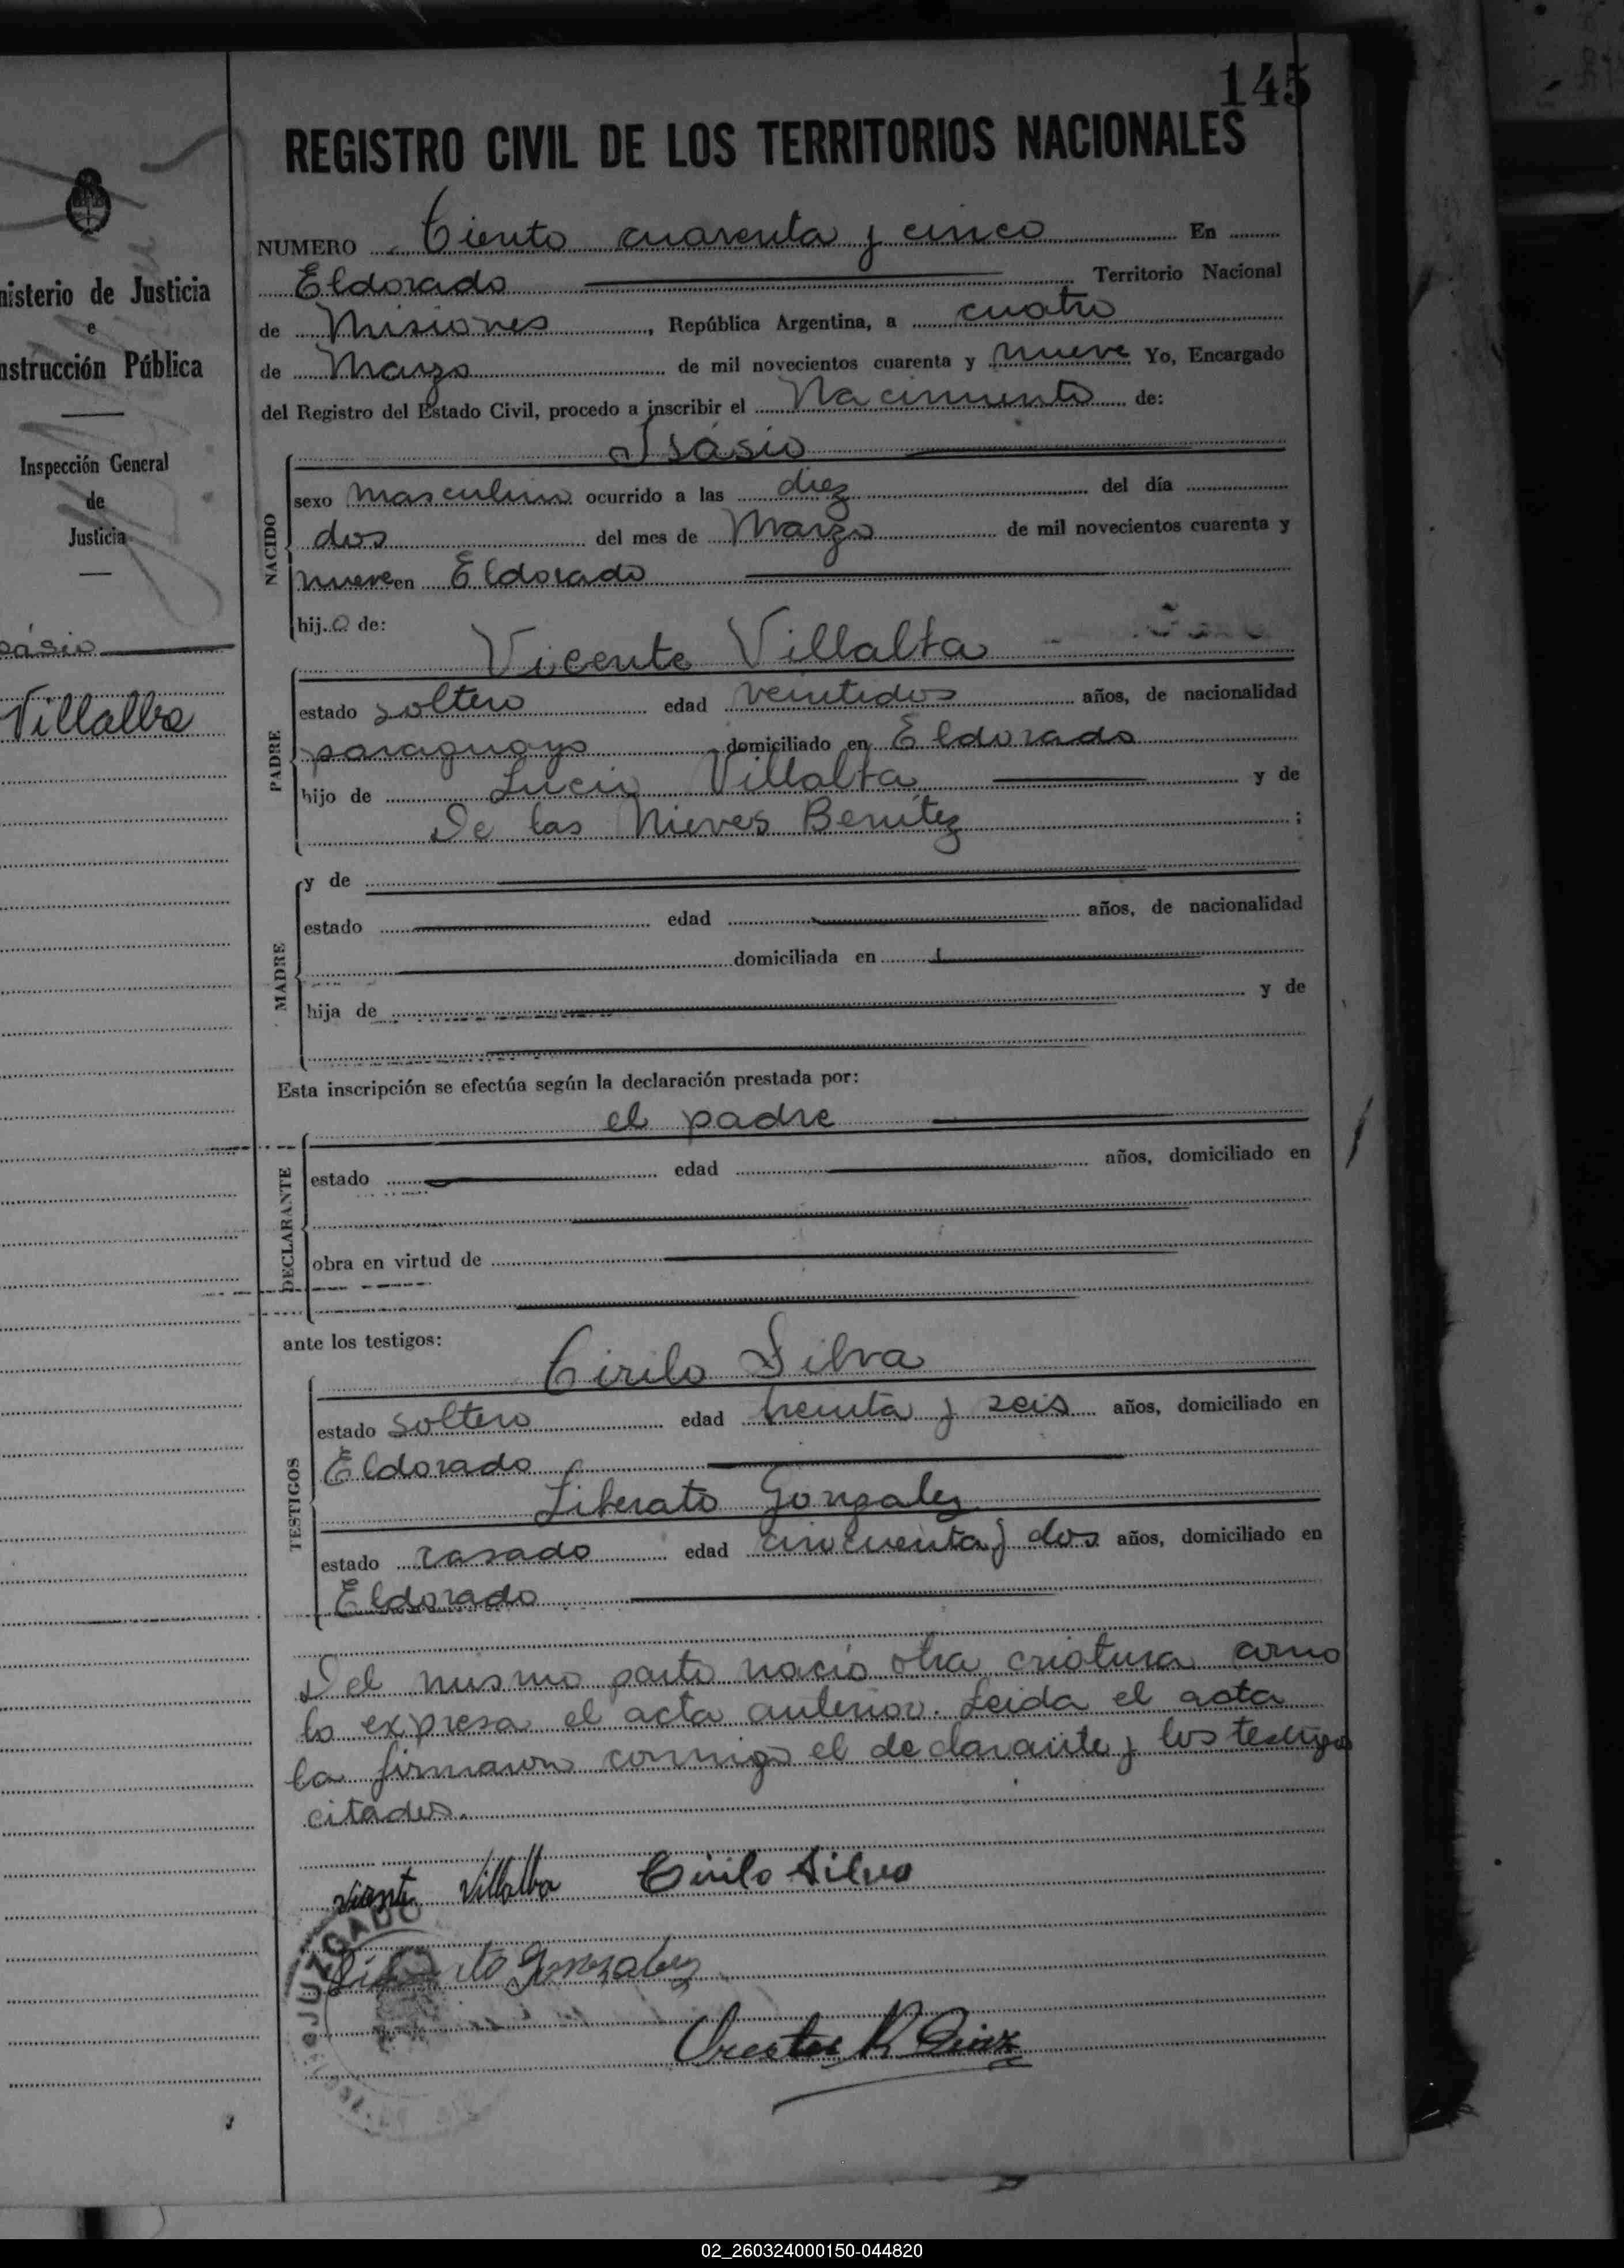 145
REGISTRO CIVIL DE LOS TERRITORIOS NACIONALES
nisterio de Justicia
e
nstrucción Pública
Inspección General
de
Justicia
ásio
Villalba
NUMERO Ciento cuarenta y cinco En
Eldorado Territorio Nacional
de Misiones, República Argentina, a cuatro
de Marzo de mil novecientos cuarenta y nueve Yo, Encargado
del Registro del Estado Civil, procedo a inscribir el Nacimiento de:
NACIDO
Isásio
sexo masculino ocurrido a las diez del día
dos del mes de Marzo de mil novecientos cuarenta y
nueve en Eldorado
hijo de:
PADRE
Vicente Villalta
estado soltero edad veintidos años, de nacionalidad
paraguayo domiciliado en Eldorado
hijo de Lucio Villalta y de
De las Nieves Benítez ;
MADRE
y de
estado edad años, de nacionalidad
domiciliada en
hija de y de
Esta inscripción se efectúa según la declaración prestada por:
DECLARANTE
el padre
estado edad años, domiciliado en
obra en virtud de
ante los testigos:
TESTIGOS
Cirilo Silva
estado soltero edad treinta y seis años, domiciliado en
Eldorado
Liberato Gonzalez
estado casado edad cincuenta y dos años, domiciliado en
Eldorado
Del mismo parto nació otra criatura como
lo expresa el acta anterior. Leida el acta
la firmaron conmigo el declarante y los testigos
citados.
Vicente Villalba Cirilo Silva
JUZGADO
Liberato Gonzalez
Orestes R Diaz
02_260324000150-044820